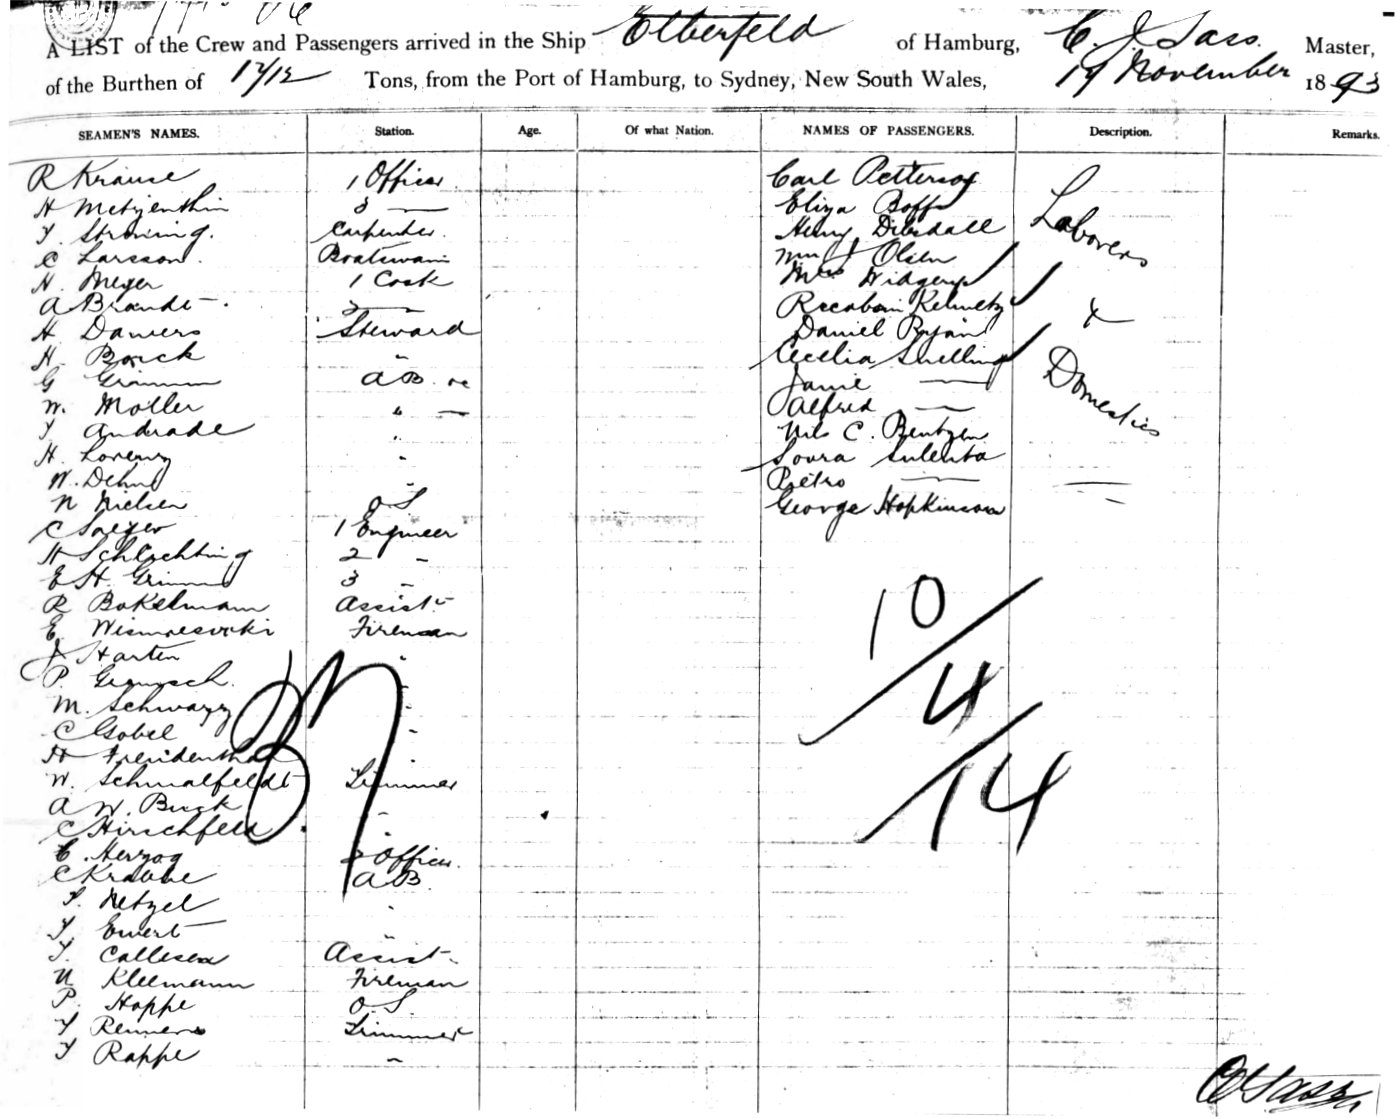 A LIST of the Crew and Passengers arrived in the Ship Elberfeld of Hamburg, C. J. Sass. Master,
of the Burthen of 1712 Tons, from the Port of Hamburg, to Sydney, New South Wales, 19 November 1893
SEAMEN'S NAMES. Station. Age. Of what Nation. NAMES OF PASSENGERS. Description. Remarks.
R Krause 1 Officer Carl Petterson
H Metzenthin 3 — Eliza Boff
Carpenter Henry Dibsdall
C Larsson. Boatswain Olsen
H. Meyer 1 Cook Mrs Widgery
A Brandt 2 —
H Daniers Steward Daniel Ryan
H. Borck " Cecilia Snelling
G Grimm AB Janie —
W. Moller " — Alfred —
Andrade " Nils C. Bentzen
H. Lorenz "
W. Dehn " Pietro —
N Nielsen OS George Hopkinson
C Saeger 1 Engineer
H Schlichting 2 -
E H. Grimm 3 -
R Bokelmann Assist
E. Fireman
J Harten "
P.
M. Schwarz "
C Gobel "
H Freidenthal "
W. Schmalfeldt Trimmer
A W. Buck "
C Hirschfeld "
C. Herzog 2 Officer
C Krause AB
Netzel "
Ewert "
Callesen Assist
N Kleemann Fireman
P. Hoppe OS
Reimers Trimmer
Rappe "
Laborers
&
Domestics
37
10/4/14